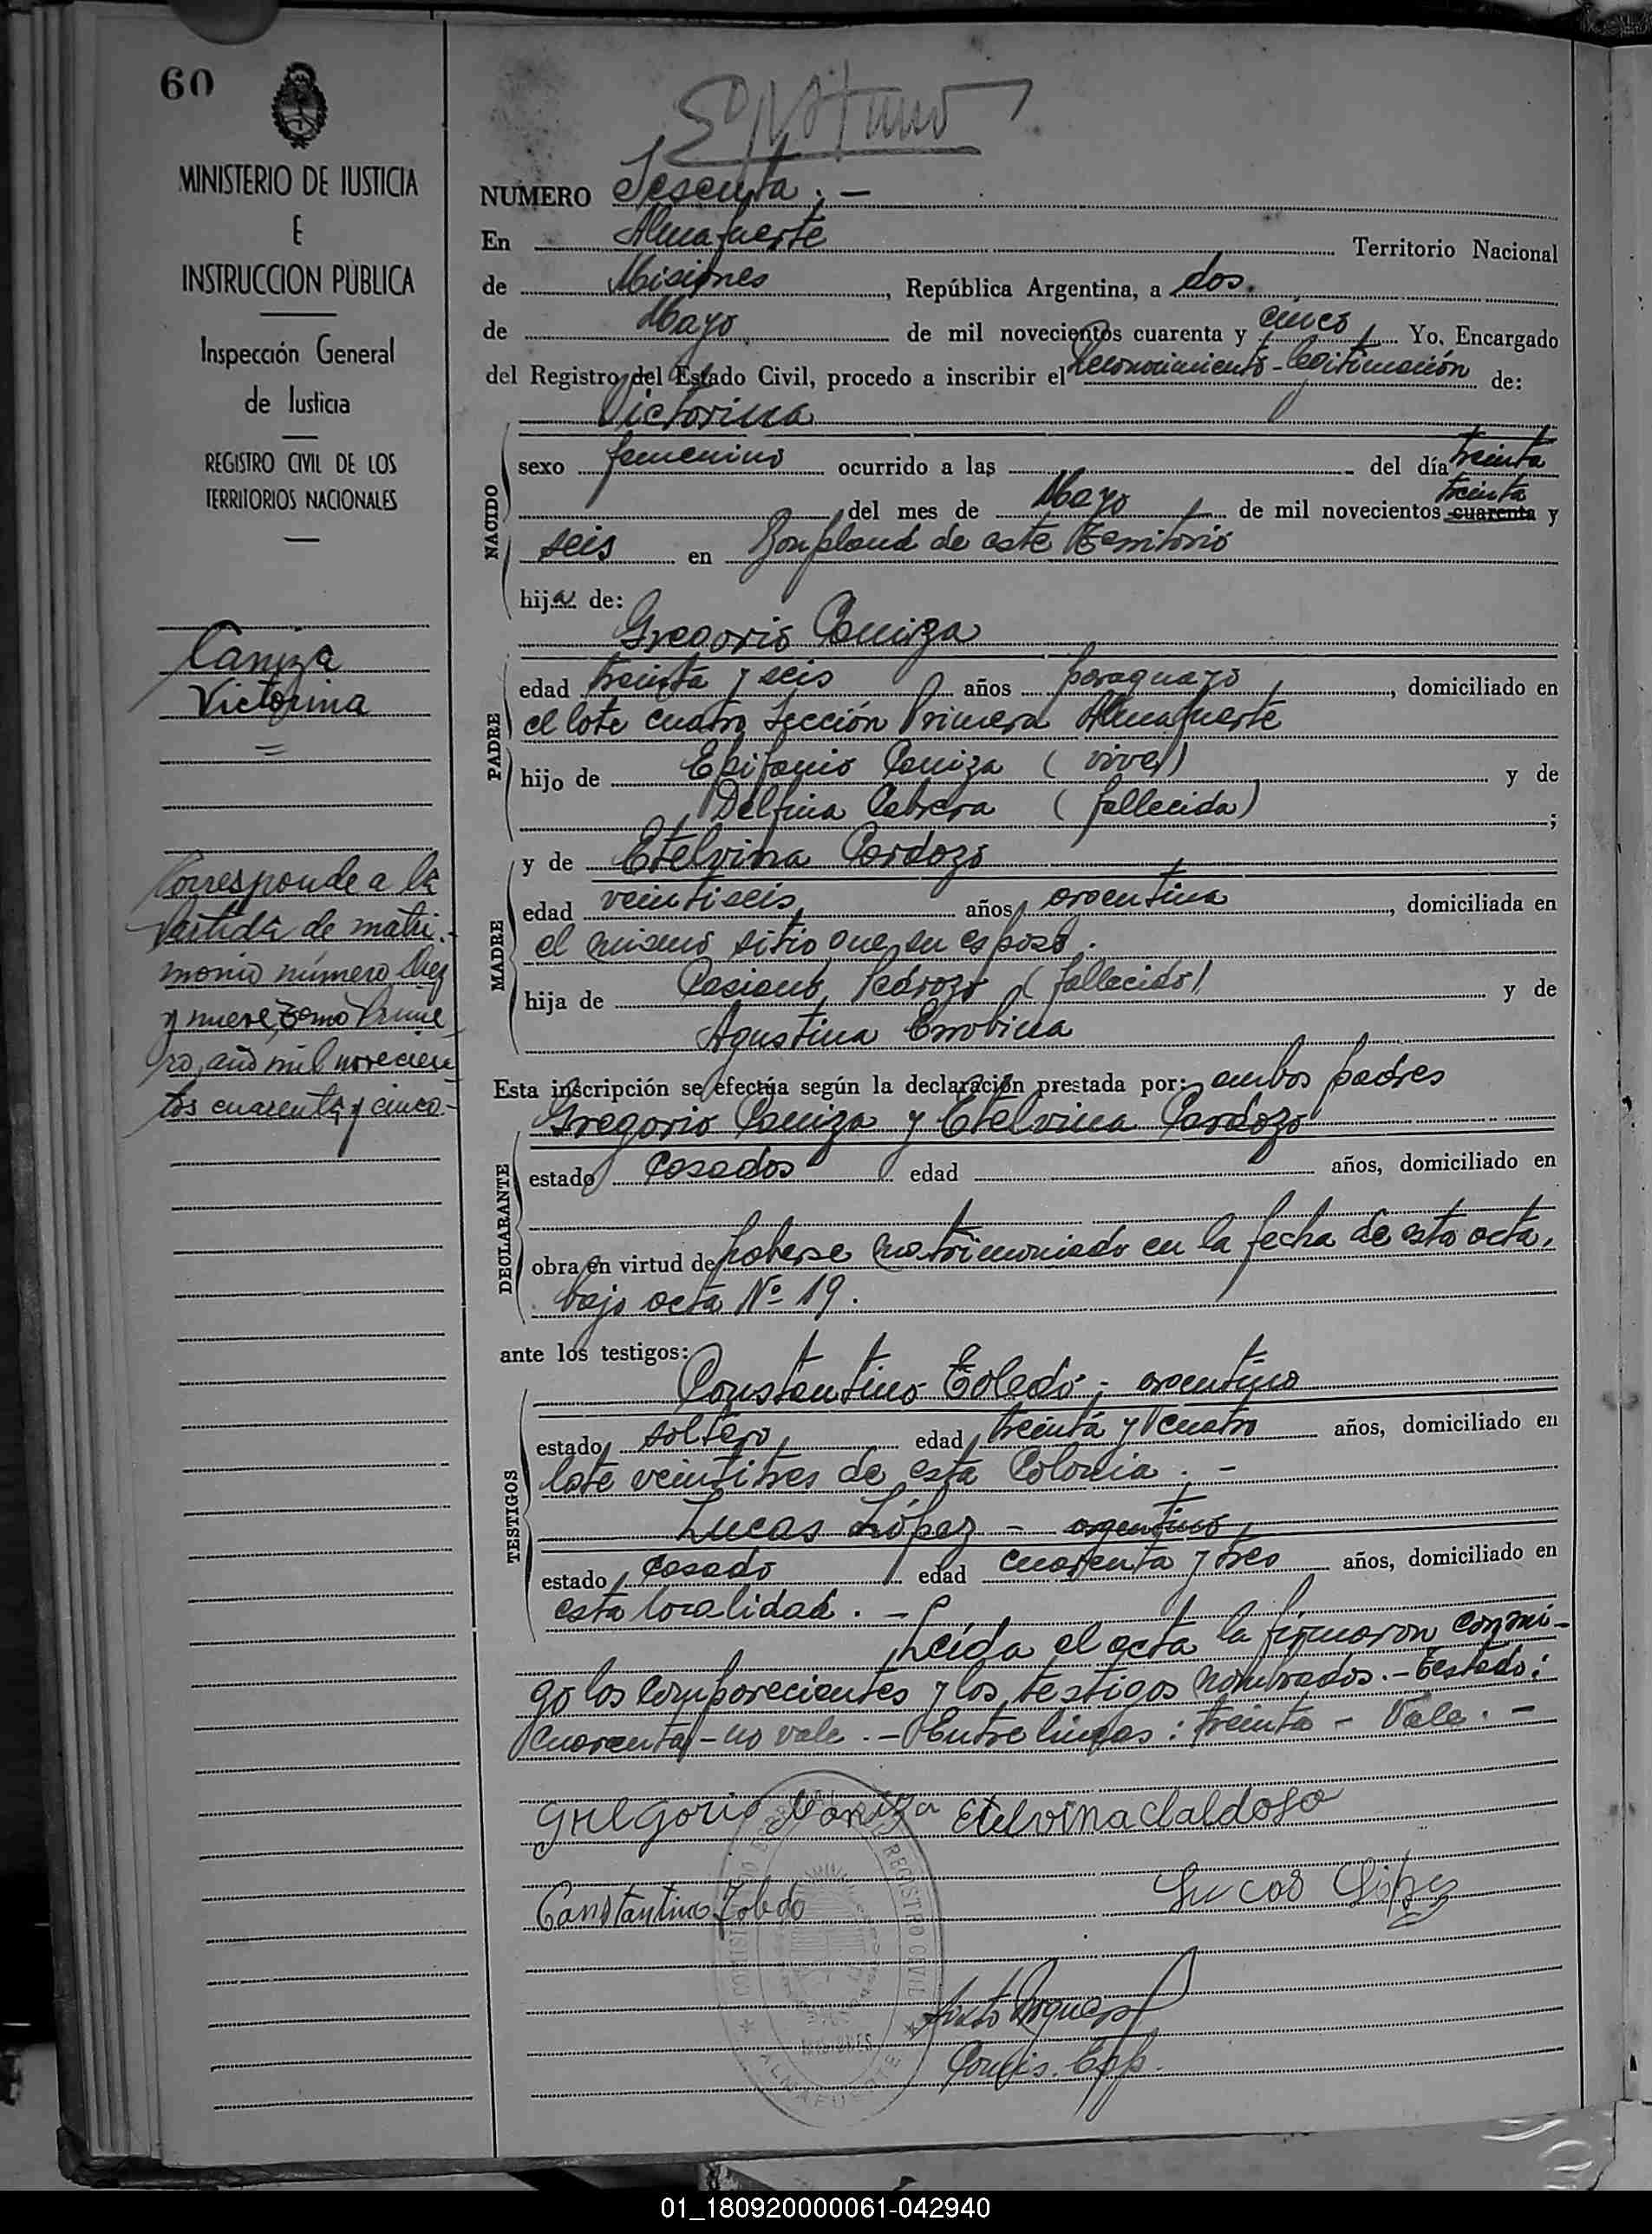 60
MINISTERIO DE JUSTICIA
E
INSTRUCCION PÚBLICA
Inspección General
de Justicia
REGISTRO CIVIL DE LOS
TERRITORIOS NACIONALES
Caniza
Victorina
Corresponde a la
Partida de matri-
monio número diez
y nueve, Tomo Prime
ro, año mil novecien
tos cuarenta y cinco.-
NUMERO Sesenta.-
En Almafuerte Territorio Nacional
de Misiones, República Argentina, a dos
de Mayo de mil novecientos cuarenta y cinco, Yo, Encargado
del Registro del Estado Civil, procedo a inscribir el Reconocimiento-Legitimación de:
Victorina
NACIDO
sexo femenino ocurrido a las del día treinta
treinta
del mes de Mayo de mil novecientos cuarenta y
seis en Bonpland de este Territorio
hija de:
Gregorio Caniza
PADRE
edad treinta y seis años paraguayo, domiciliado en
el lote cuatro Sección Primera Almafuerte
hijo de Epifanio Caniza (vive) y de
Delfina Cabrera (fallecida);
y de Etelvina Cardozo
MADRE
edad veintiseis años argentina, domiciliada en
el mismo sitio que su esposo.
hija de Casiano (fallecido) y de
Agustina
Esta inscripción se efectúa según la declaración prestada por: ambos padres
Gregorio Caniza y Etelvina Cardozo
DECLARANTE
estado casados edad años, domiciliado en
obra en virtud de haberse matrimoniado en la fecha de esta acta,
bajo acta Nº 19.
ante los testigos:
Constantino Toledo; argentino
TESTIGOS
estado soltero, edad treinta y cuatro años, domiciliado en
lote veintitres de esta Colonia.-
Lucas López - argentino,
estado casado edad cuarenta y tres años, domiciliado en
esta localidad.-
Leída el acta la firmaron conmi-
go los comparecientes y los testigos nombrados.-Testado:
cuarenta-no vale.-Entre lineas: treinta - Vale.-
Gregorio Caniza Etelvina Caldoso
Constantino Toledo Lucas López
REGISTRO CIVIL
MISIONES
ALMAFUERTE
01_180920000061-042940